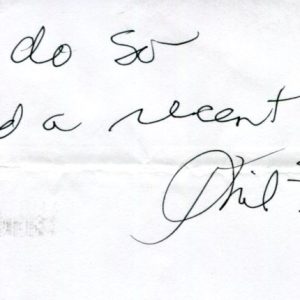 do so
a recent
Phil